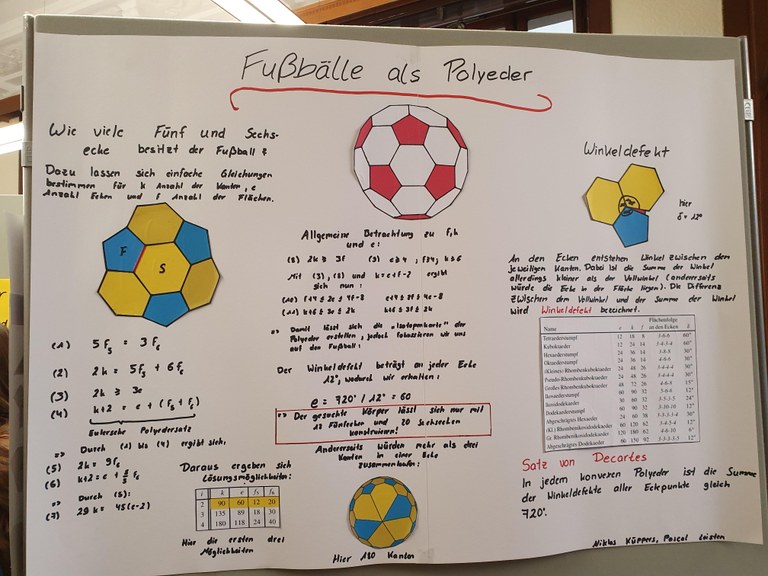 Fußbälle als Polyeder
Wie viele Fünf und Sechs-
ecke besitzt der Fußball?
Dazu lassen sich einfache Gleichungen
bestimmen für k Anzahl der Kanten, e
Anzahl Ecken und f Anzahl der Flächen.
F
S
(1) 5f₅ = 3f₆
(2) 2k = 5f₅ + 6f₆
(3) 2k ≥ 3e
(4) k+2 = e + (f₅ + f₆)
Eulersche Polyedersatz
=> Durch (1) bis (4) ergibt sich,
(5) 2k = 9f₅
(6)
=> Durch (5):
(7) 29k = 45(e-2)
Daraus ergeben sich
Lösungsmöglichkeiten:
i k e f₅ f₆
2 90 60 12 20
3 135 89 18 30
4 180 118 24 40
Hier die ersten drei
Möglichkeiten
Allgemeine Betrachtung zu f,k
und e:
(8) 2k ≥ 3f (9) e≥4, f≥4, k≥6
Mit (3), (8) und k=e+f-2 ergibt
sich nun:
(10) f+4 ≤ 2e ≤ 4f-8 e+4 ≤ 2f ≤ 4e-8
(11) k+6 ≤ 3e ≤ 2k k+6 ≤ 3f ≤ 2k
=> Damit lässt sich die der
Polyeder erstellen, jedoch fokussieren wir uns
auf den Fußball:
Der Winkeldefekt beträgt an jeder Ecke
12°, wodurch wir erhalten:
e = 720° / 12° = 60
=> Der gesuchte Körper lässt sich nur mit
12 Fünfecken und 20 Sechsecken
konstruieren!
Andererseits würden mehr als drei
Kanten in einer Ecke
zusammenlaufen:
Hier 180 Kanten
Winkeldefekt
hier
δ = 12°
An den Ecken entstehen Winkel zwischen den
jeweiligen Kanten. Dabei ist die Summe der Winkel
allerdings kleiner als der Vollwinkel (andererseits
würde die Ecke in der Fläche liegen). Die Differenz
zwischen dem Vollwinkel und der Summe der Winkel
wird Winkeldefekt bezeichnet.
Flächenfolge
Name e k f an den Ecken δ
Tetraederstumpf 12 18 8 3-6-6 60°
Kuboktaeder 12 24 14 3-4-3-4 60°
Hexaederstumpf 24 36 14 3-8-8 30°
Oktaederstumpf 24 36 14 4-6-6 30°
(Kleines) Rhombenkuboktaeder 24 48 26 3-4-4-4 30°
Pseudo-Rhombenkuboktaeder 24 48 26 3-4-4-4 30°
Großes Rhombenkuboktaeder 48 72 26 4-6-8 15°
Ikosaederstumpf 60 90 32 5-6-6 12°
Ikosidodekaeder 30 60 32 3-5-3-5 24°
Dodekaederstumpf 60 90 32 3-10-10 12°
Abgeschrägtes Hexaeder 24 60 38 3-3-3-3-4 30°
(Kl.) Rhombenikosidodekaeder 60 120 62 3-4-5-4 12°
Gr. Rhombenikosidodekaeder 120 180 62 4-6-10 6°
Abgeschrägtes Dodekaeder 60 150 92 3-3-3-3-5 12°
Satz von Decartes
In jedem konvexen Polyeder ist die Summe
der Winkeldefekte aller Eckpunkte gleich
720°.
Niklas Küppers, Pascal Leisten